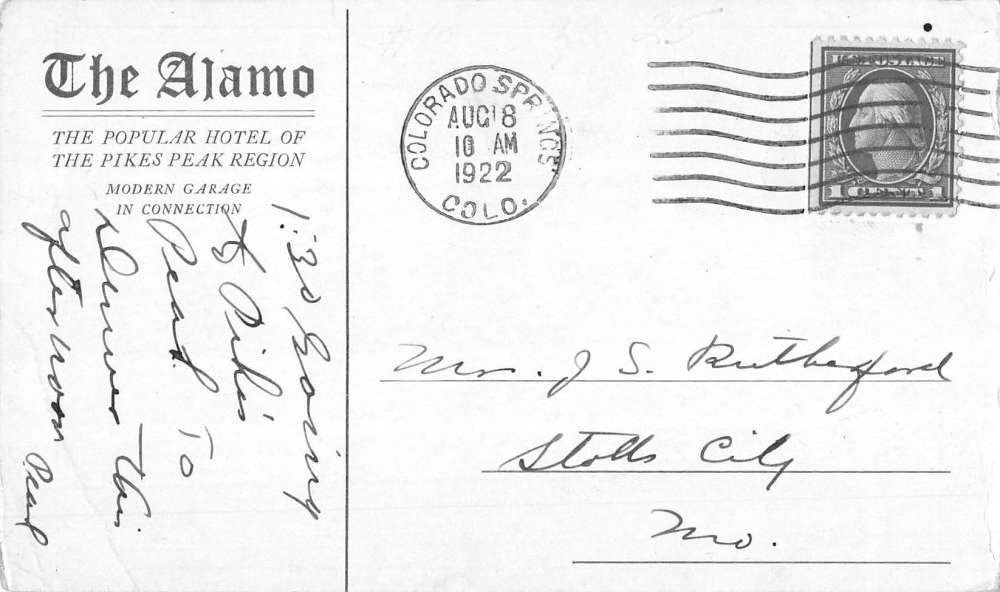 The Alamo
THE POPULAR HOTEL OF
THE PIKES PEAK REGION
MODERN GARAGE
IN CONNECTION
1:30 Going
to Pike's
Peak. To
Denver this
afternoon
Pearl
COLORADO SPRINGS
AUG 8
10 AM
1922
COLO.
Mrs. J S. Rutherford
Stotts City
Mo.